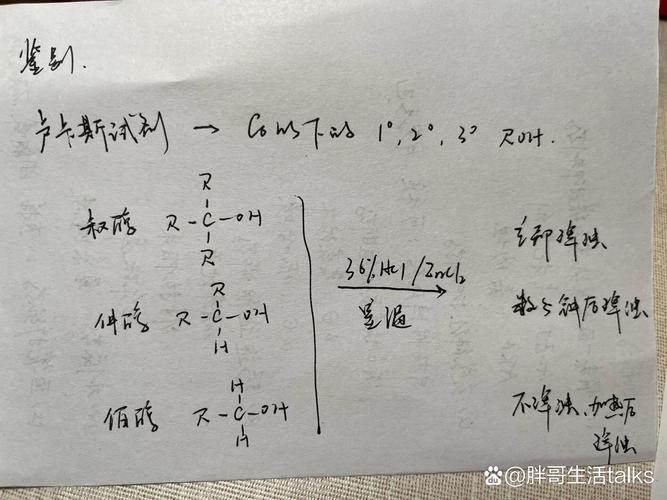 鉴别.
卢卡斯试剂 → C6以下的 1°, 2°, 3° ROH.
R
叔醇 R-C-OH 立即浑浊
R
36%HCl/ZnCl2
室温
R
仲醇 R-C-OH 数分钟后浑浊
H
H
伯醇 R-C-OH 不浑浊、加热后
H 浑浊
胖哥生活talks